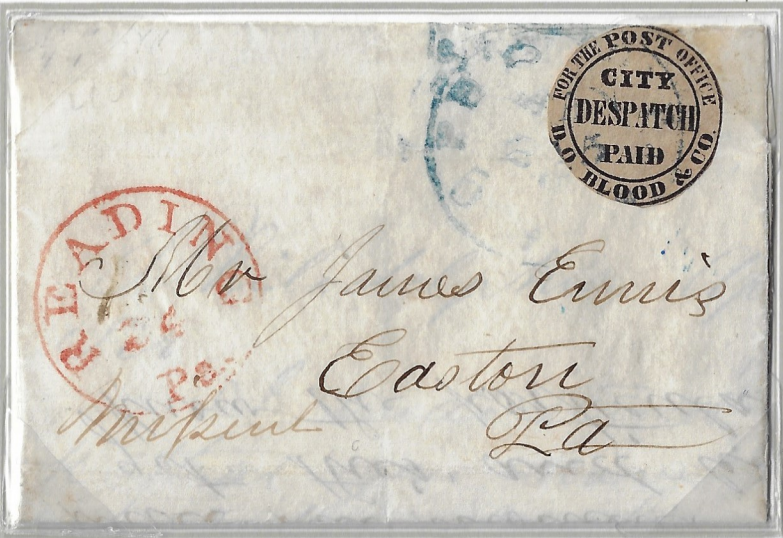 FOR THE POST OFFICE
CITY
DESPATCH
PAID
D.O. BLOOD & CO.
READING
24
Pa
Mr James Ennis
Easton
Pa